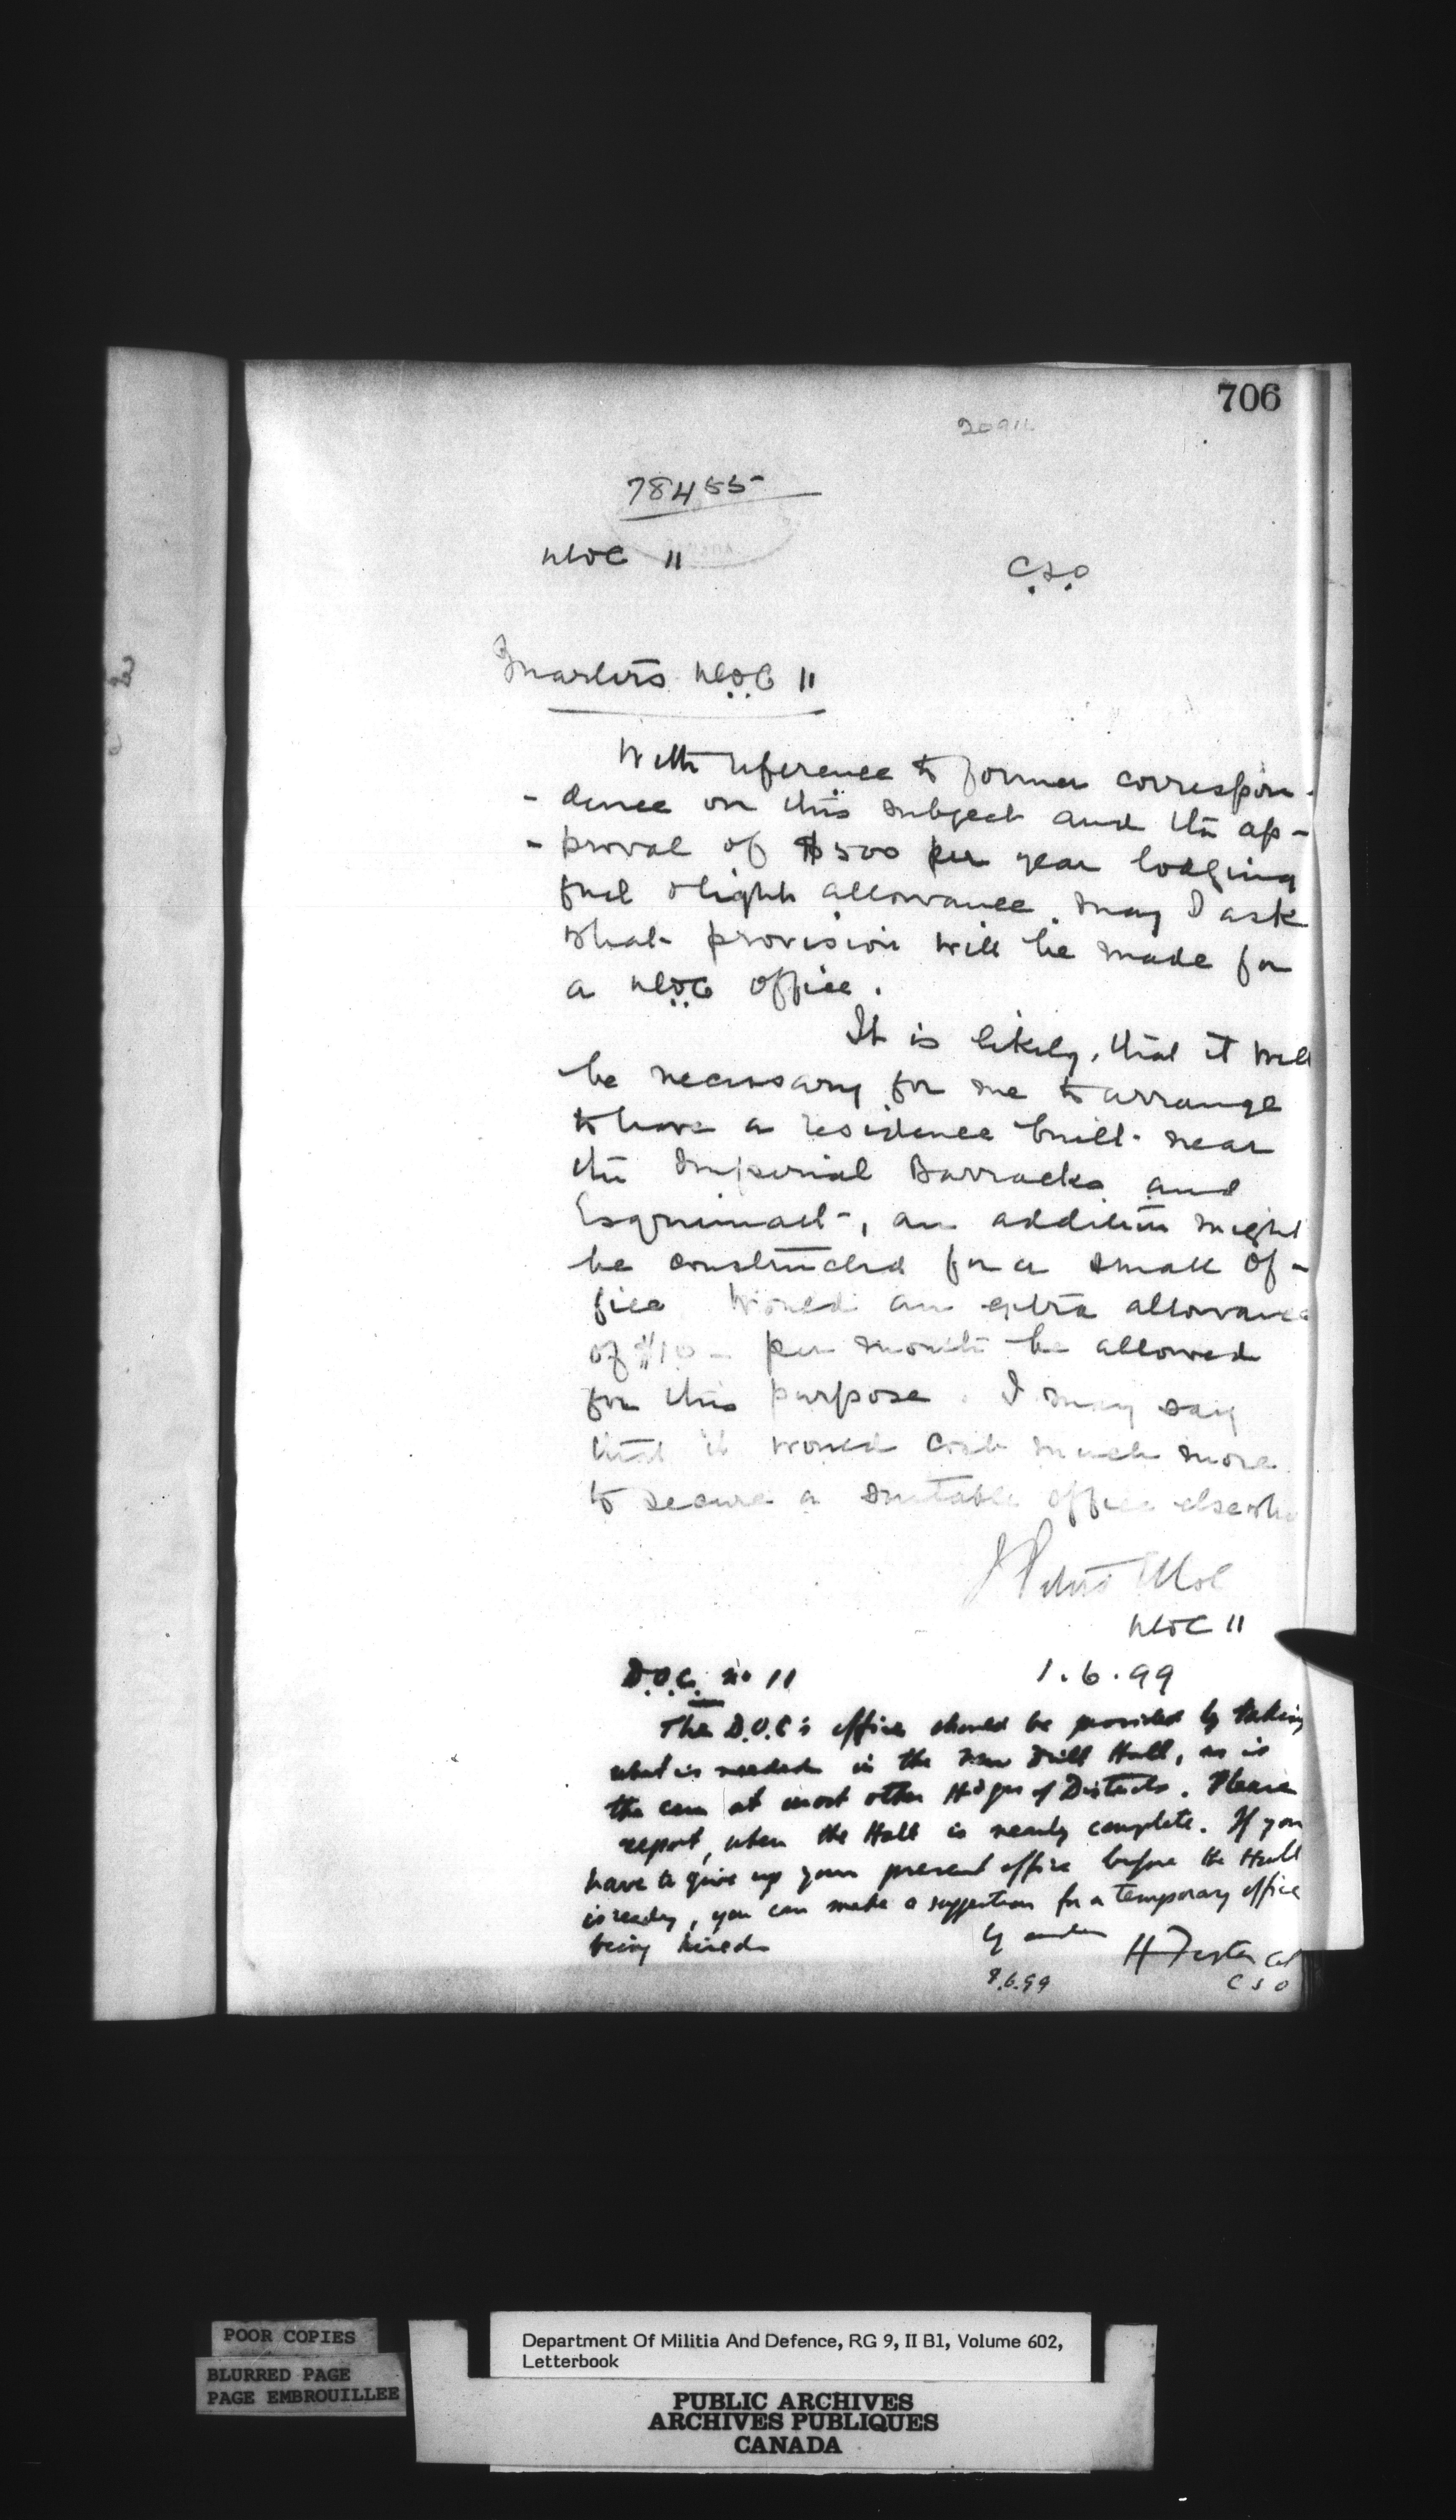 706
78455
DOC 11
C.S.O
Quarters D.O.C 11
With reference to former correspon-
-dence on this subject and the ap-
-proval of $500 per year lodging
fuel & light allowance. may I ask
what provision will be made for
a D.O.C office.
It is likely, that it will
be necessary for me to arrange
to have a residence built near
the Imperial Barracks and
Esquimalt, an addition might
be constructed for a small of-
fice would an extra allowance
of $10 - per month be allowed
for this purpose. I may say
that it would cost much more
to secure a suitable office elsewhe
J Peters
DOC 11
1.6.99
D.O.C. No 11
The D.O.C's office should be provided by taking
what is needed in the new Drill Hall, as is
the case at most other Hdqrs of Districts. Please
report, when the Hall is nearly complete. If you
have to give up your present office before the Hall
is ready, you can make a suggestion for a temporary office
being hired
by order
H Foster Col
8.6.99
C S O
POOR COPIES
BLURRED PAGE
PAGE EMBROUILLEE
Department Of Militia And Defence, RG 9, II B1, Volume 602,
Letterbook
PUBLIC ARCHIVES
ARCHIVES PUBLIQUES
CANADA